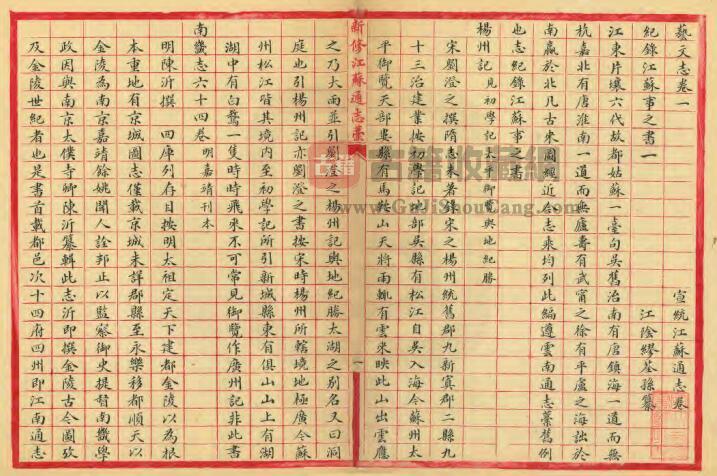 藝文志卷一
宣統江蘇通志卷
紀錄江蘇事之書一
江陰繆荃孫纂
江東片壤六代故都姑蘇一臺句吳舊治南有唐鎮海一道而無
杭嘉北有唐淮南一道而無廬壽有武甯之徐有平盧之海訟於
南贏於北凡古來圖經近今志乘均列此編遵雲南通志藁舊例
也志紀錄江蘇事之書
楊州記
見初學記太平御覽輿地紀勝
宋劉澄之撰隋志未著錄宋之楊州統舊郡九新寘郡二縣九
十三治建業按初學記地部吳縣有松江自吳入海今蘇州太
平御覽天部婁縣有馬鞍山天將雨輒有雲來映此山出雲應
新修江蘇通志藁
一
之乃大雨並引劉澄之楊州記輿地紀勝太湖之別名又曰洞
庭也引楊州記亦劉澄之書按宋時楊州所轄境地極廣今蘇
州松江皆其境內至初學記所引新城縣東有俱山山上有湖
湖中有白鵞一隻時時飛來不可常見御覽作廣州記非此書
南畿志六十四卷
明嘉靖刊本
明陳沂撰 四庫列存目按明太祖定天下建都金陵以為根
本重地有京城圖志僅載京城未詳郡縣至永樂移都順天以
金陵為南京嘉靖餘姚聞人詮邦正以監察御史提督南畿學
政因與南京太僕寺卿陳沂纂輯此志沂即撰金陵古今圖攷
及金陵世紀者也是書首載都邑次十四府四州即江南通志
古籍
古籍收藏網
www.GuJiShouCang.com